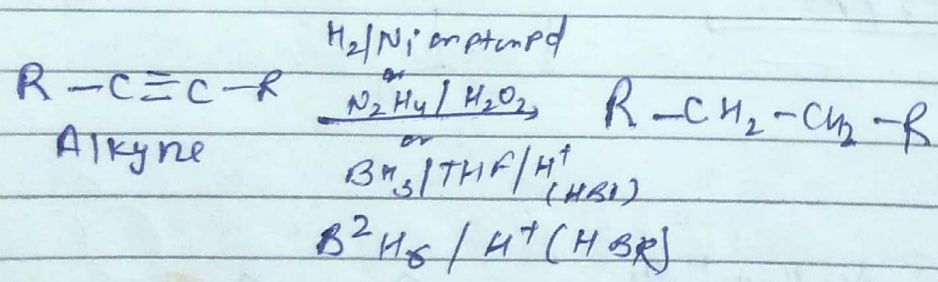 H₂/Ni or pt or pd
R-C≡C-R or N₂H₄/H₂O₂, R-CH₂-CH₂-R
Alkyne or
BH₃/THF/H⁺
(HBR)
B²H₆/H⁺(HBR)